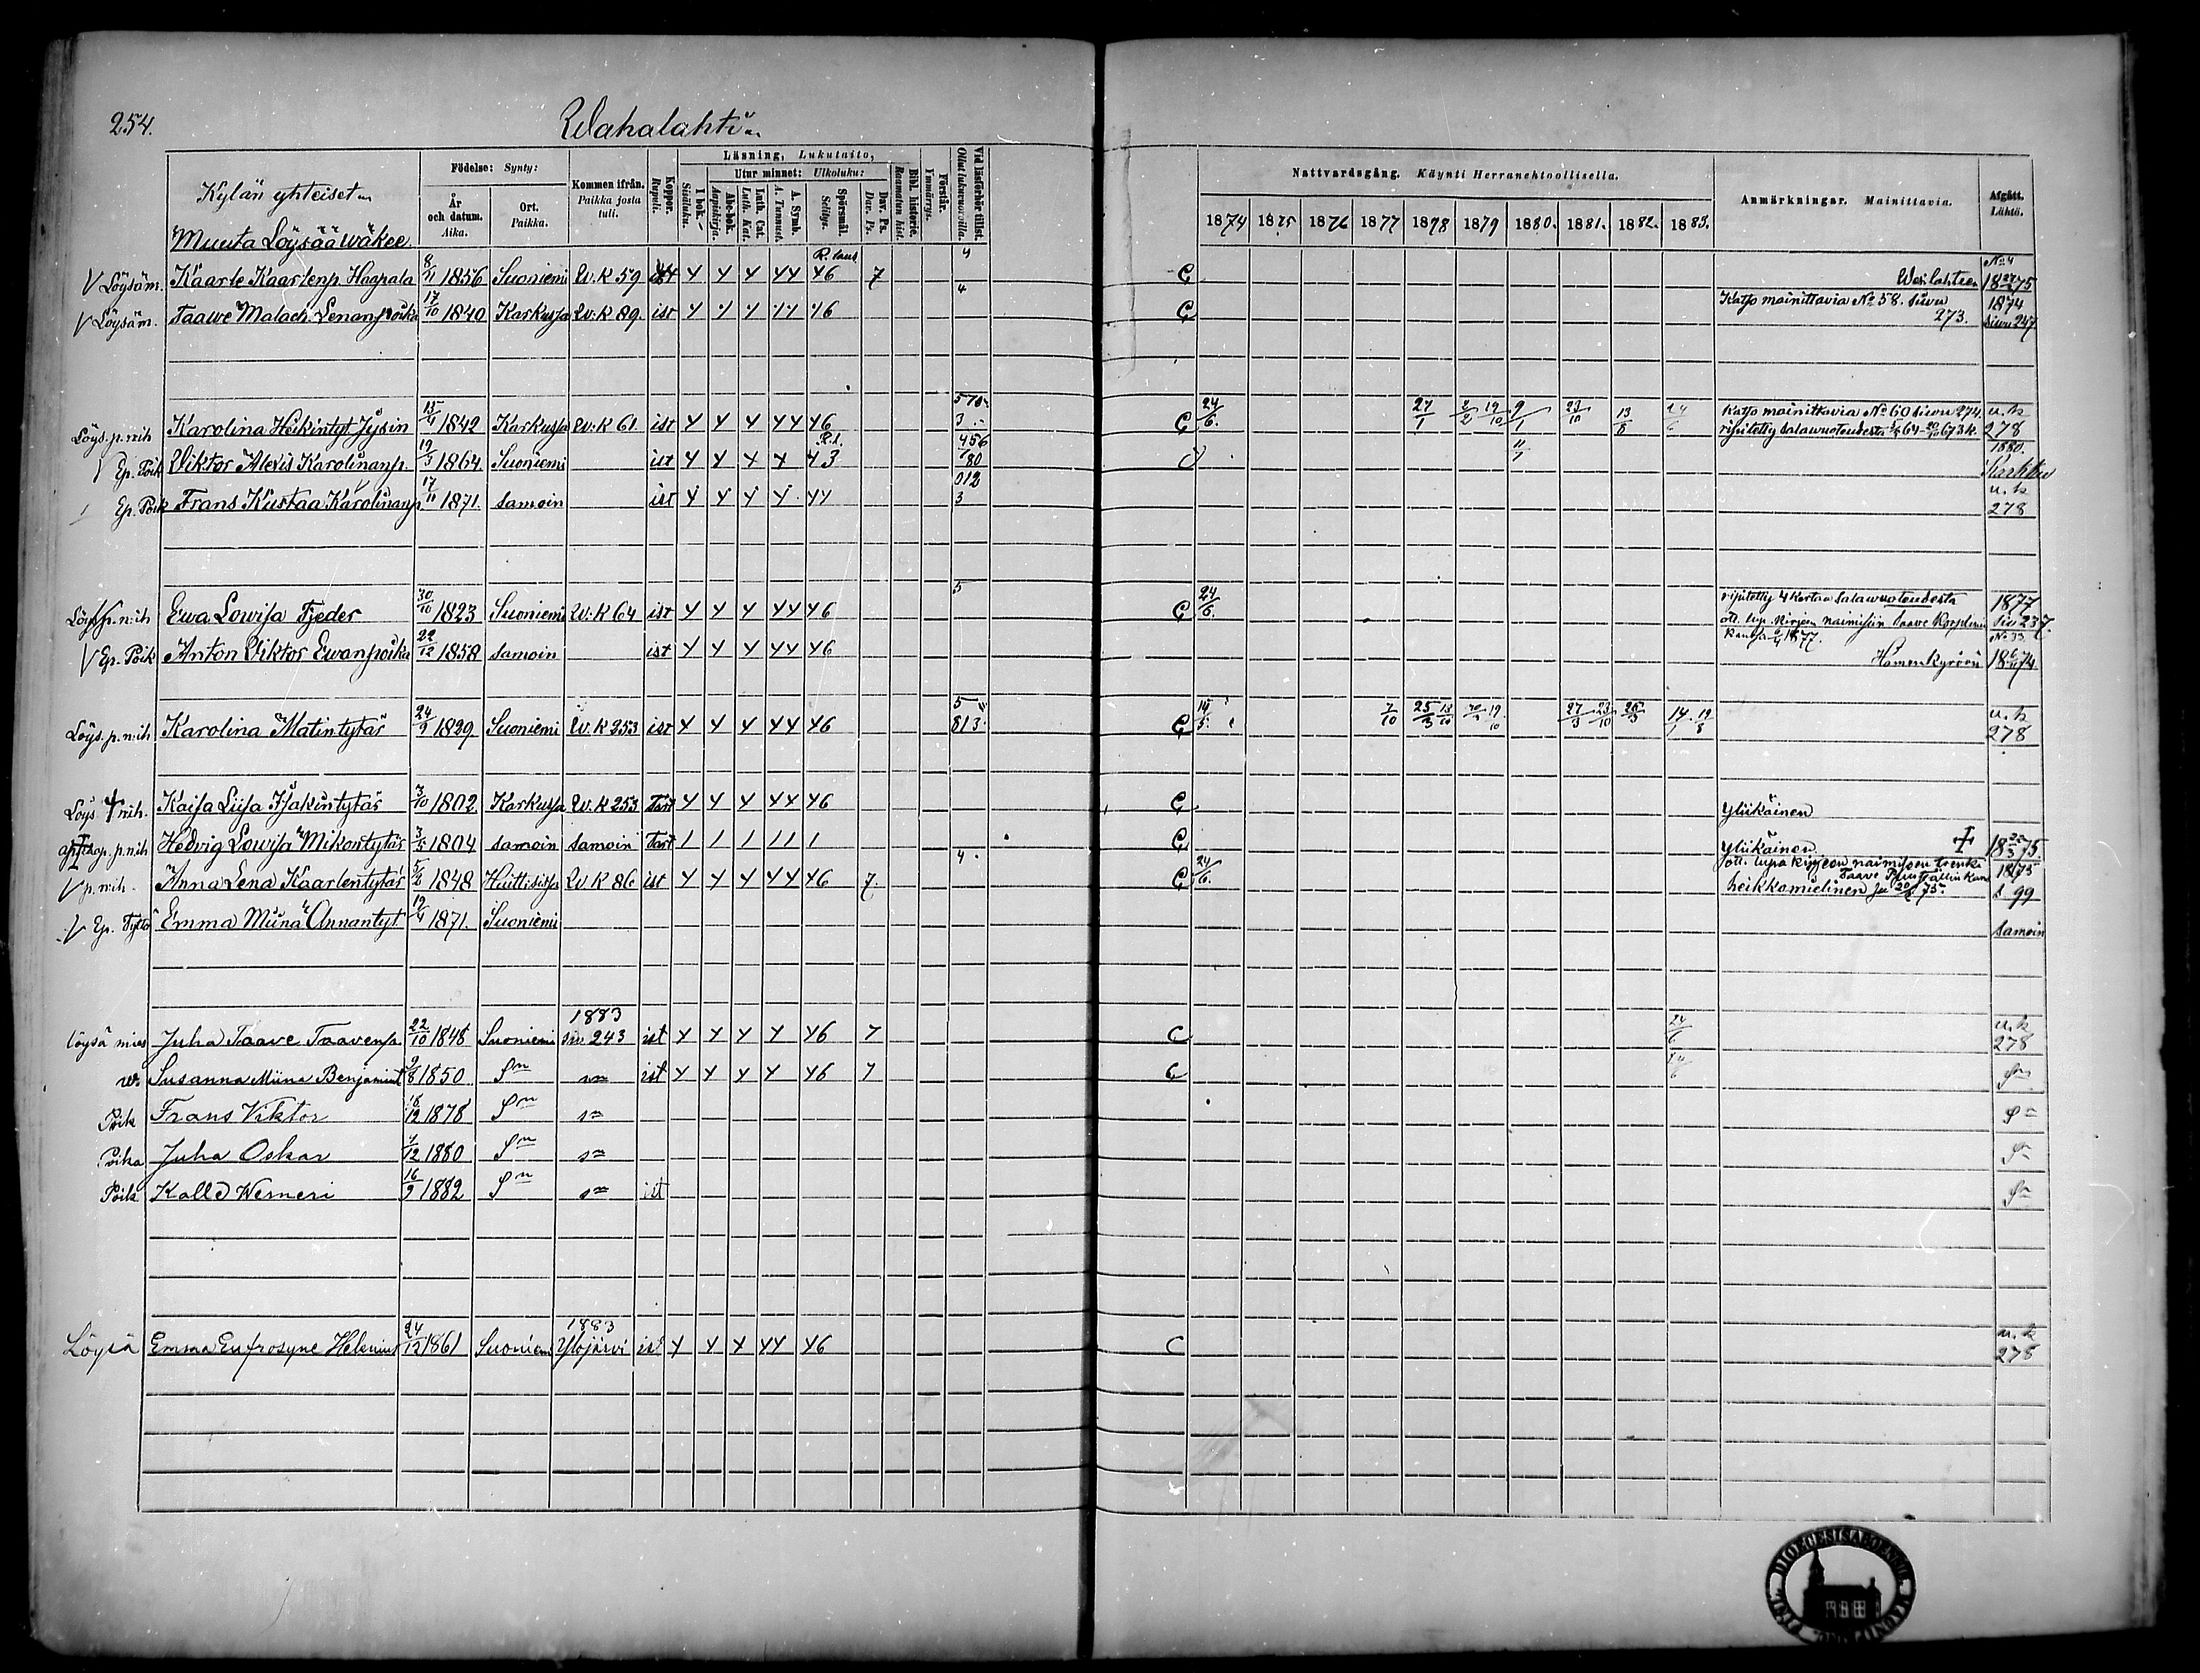 254.
Wahalahti
Kylän yhteiset
Muuta Löysää wäkee.
Födelse: Synty:
År och datum. Aika.
Ort. Paikka.
Kommen ifrån. Paikka josta tuli.
Koppor. Rupuli.
Läsning, Lukutaito,
I bok. Sisäluku.
Utur minnet: Ulkoluku:
Abc-bok. Aapiskirja.
Luth. Cat. Luth. Kat.
A. Symb. A. Tunnust.
Spörsmål. Selitys.
Dav. Ps. Dav. Ps.
Bibl. historie. Raamatun hist.
Förstår. Ymmärrys.
Vid läsförhör tillst. Ollut lukuwuoroilla.
Nattvardsgång. Käynti Herranehtoollisella.
1874 1875 1876 1877 1878 1879 1880. 1881. 1882. 1883.
Anmärkningar. Mainittavia.
Afgått. Lähtö.
V Löysäm. Kaarle Kaarlenp. Haapala 8/11 1856 Suoniemi W.K 59 ist 46 7 C Wesilahteen No 4 18 75
V Löysäm. Taawe Malach. Lenanpoika 17/10 1840 Karkussa W.K 89. ist 46 4 C Katso mainittavia No 58. siwu 273. 1874 siwu 247
Löys. p. nih Karolina Heikintyt Jysin 15/4 1842 Karkussa W.K 61. ist 46 C 24/6. 27/1 2/2 19/10 9/1 23/10 13/8 24/6 Katso mainittavia No 60 siwu 274. ripitetty salawuoteudesta u.k 278
V Ep. Poik Viktor Alexis Karolinanp. 19/3 1864 Suoniemi ist 43 456 80 11/7 1880. Karkku
Ep. Poik Frans Kustaa Karolinanp. 17/11 1871. samoin ist 44 012 3 u.k 278
Löys p. n:ih Ewa Lowisa Fjeder 30/10 1823 Suoniemi W.K 64 ist 46 5 C 24/6. ripitetty 4 kertaa salawuoteudesta 1877 siv 237.
ott. lup. kirjeen naimisiin Taave kanssa 1877.
V Ep. Poik Anton Viktor Ewanpoika 22/12 1858 samoin ist 46 Hämenkyröön No 33 18 74
Löys. p. n:ih Karolina Matintytär 24/9 1829 Suoniemi W.K 253 ist 46 5 813 C 7/10 25/3 13/10 19/10 27/3 23/10 26/3 u.k 278
Löys nih. Kaisa Liisa Isakintytär 3/10 1802 Karkussa W.K 253 46 C Yliikäinen
p. nih Hedvig Lowisa Mikontytär 1804 samoin samoin C Yliikäinen 18 75
V p. nih. Anna Lena Kaarlentytär 5/2 1848 Huittisissa W K 86 ist 46 7. 4 C 24/6. ott. lupa kirjeen naimiseen trenki Taave kans
heikkomielinen 1875 s. 99
V Ep. Tyttö Emma Miina Annantyt 19/4 1871. Suoniemi samoin
löysä mies Juha Taave Taavenp. 22/10 1848 Suoniemi 1883 siv. 243 ist 46 7 C 24/6 u.k 278
w. Susanna Miina Benjamint 2/8 1850 Sn sn ist 46 7 C 24/6 Sn
Poik Frans Viktor 18/12 1878 Sn sn Sn
Poika Juha Oskar 7/12 1880 Sn sn Sn
Poik Kalle Werneri 16/9 1882 Sn sn ist Sn
Löysä Emma Eufrosyne 24/12 1861 Suoniemi 1883 Ylöjärvi ist 46 C u.k 278